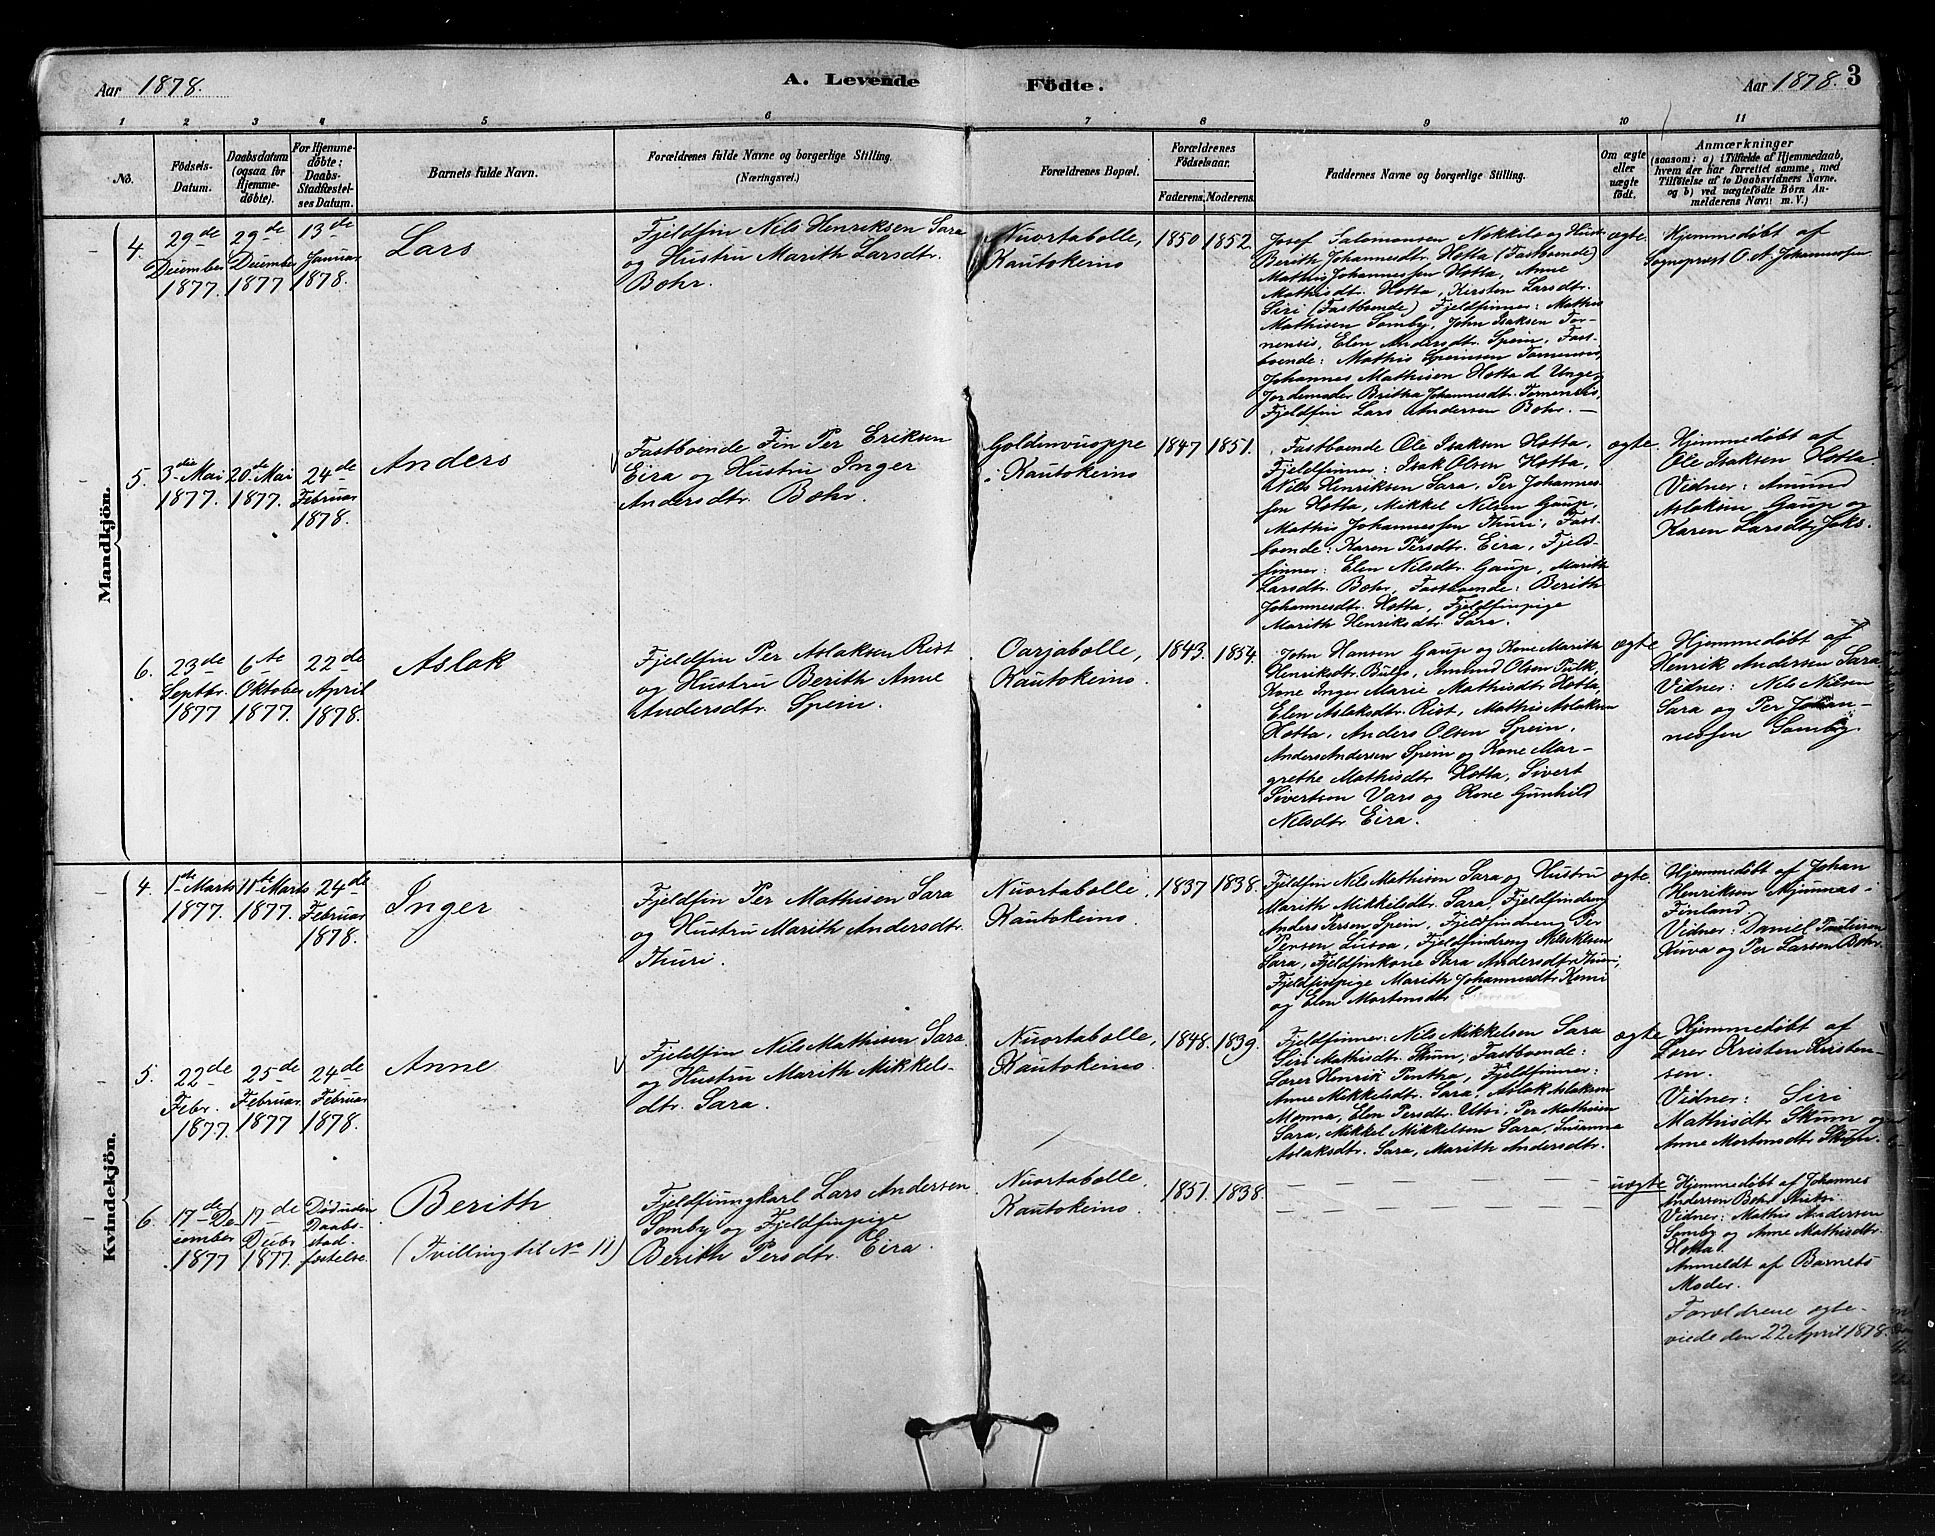 Aar 1878.
A. Levende Fødte.
Aar 1878. 3
1 2 3 4 5 6 7 8 9 10 11
No.
Fødsels-
Datum.
Daabsdatum
(ogsaa for
Hjemme-
døbte).
For Hjemme-
døbte:
Daabs-
Stadfæstel-
ses Datum.
Barnets fulde Navn.
Forældrenes fulde Navne og borgerlige Stilling.
(Næringsvei.)
Forældrenes Bopæl.
Forældrenes
Fødselsaar.
Faderens. Moderens.
Faddernes Navne og borgerlige Stilling.
Om ægte
eller
uægte
født.
Anmærkninger
(saasom: a) i Tilfælde af Hjemmedaab,
hvem der har forrettet samme, med
Tilføielse af to Daabsvidners Navne,
og b) ved uægtefødte Børn An-
melderens Navn m. V.)
Mandkjön.
4.
29de
December
1877.
29de
December
1877
13de
Januar
1878.
Lars
Fjeldfin Nils Henriksen Sara
og Hustru Marith Larsdtr.
Bohr.
Nuortabolle,
Kautokeino
1850 1852.
Josef Salomonsen Nokkila og Hustr.
Berith Johannesdtr. Hotta (Fastboende)
Mathis Johannessen Hotta, Anne
Mathisdtr. Hotta, Kirsten Larsdtr.
Siri (Fastboende) Fjeldfinner: Mathis
Mathisen Somby, John Isaksen Tor-
nensis, Elen Andersdtr. Spein, Fast-
boende: Mathis Speinsen Tornensis,
Johannes Mathisen Hotta d Unge,
Jordemoder Britha Johannesdtr. Tornensis,
Fjeldfin Lars Andersen Bohr. —
ægte
Hjemmedøbt af
Sognepræst O. A. Johannessen
5.
3die Mai
1877.
20de Mai
1877.
24de
Februar
1878.
Anders
Fastboende Fin Per Eriksen
Eira og Hustru Inger
Andersdtr. Bohr.
Goldinvuoppe
i Kautokeino
1847 1851.
Fastboende Ole Isaksen Hotta,
Fjeldfinner: Isak Olsen Hotta,
Nils Henriksen Sara, Per Johannes-
sen Hotta, Mikkel Nilsen Gaup,
Mathis Johannessen Thuri, Fast-
boende: Karen Persdtr. Eira, Fjeld-
finner: Elen Nilsdtr. Gaup, Marith
Larsdtr. Bohr, Fastboende: Berith
Johannesdtr. Hotta, Fjeldfinpige
Marith Henriksdtr. Sara.
ægte.
Hjemmedøbt af
Ole Isaksen Hotta.
Vidner: Amund
Aslaksen Gaup og
Karen Larsdtr. Joks.
6.
23de
Septbr.
1877
6te
Oktober
1877.
22de
April
1878.
Aslak
Fjeldfin Per Aslaksen Rist
og Hustru Berith Anne
Andersdtr. Spein.
Oarjabolle,
Kautokeino.
1843. 1854.
John Hansen Gaup og Kone Marith
Henriksdtr. Buljo, Amund Olsen Pulk,
Kone Inger Marie Mathisdtr Hotta,
Elen Aslaksdtr. Rist, Mathis Aslaksen
Hotta, Anders Olsen Spein,
Anders Andersen Spein og Kone Mar-
grethe Mathisdtr Hotta, Sivert
Sivertsen Vars og Kone Gunhild
Nilsdtr. Eira.
ægte
Hjemmedøbt af
Henrik Andersen Sara
Vidner: Nils Nilsen
Sara og Per Johan-
nessen Somby.
Kvindekjön.
4.
1ste Marts
1877.
11te Marts
1877.
24de
Februar
1878.
Inger
Fjeldfin Per Mathisen Sara
og Hustru Marith Andersdtr.
Thuri.
Nuortabolle.
Kautokeino.
1837 1838.
Fjeldfin Nils Mathisen Sara og Hustru
Marith Mikkelsdtr. Sara, Fjeldfindreng
Anders Persen Spein, Fjeldfindreng Per
Persen Lusoa, Fjeldfindreng Nils Nilsen
Sara, Fjeldfinkone Sara Andersdtr Thuri,
Fjeldfinpige Marith Johannesdtr Kemi
og Elen Mortensdtr
ægte.
Hjemmedøbt af Johan
Henriksen Mjunnas i
Finland
Vidner: Daniel Paulusen
Kuva og Per Larsen Bohr.
5.
22de
Febr.
1877.
25de
Februar
1877
24de
Februar
1878.
Anne
Fjeldfin Nils Mathisen Sara
og Hustru Marith Mikkels-
dtr. Sara.
Nuortabolle,
Kautokeino.
1848. 1839.
Fjeldfinner: Nils Mikkelsen Sara
Siri Mathisdtr Skum, Fastboende:
Lærer Henrik Pentha, Fjeldfinner:
Anne Mikkelsdtr. Sara, Aslak Aslaksen
Monna, Elen Persdtr. Utsi, Per Mathisen
Sara, Mikkel Mikkelsen Sara, Susanna
Aslaksdtr. Sara, Marith Andersdtr.
ægte
Hjemmedøbt af
Lærer Kristen Kristen-
sen.
Vidner: Siri
Mathisdtr Skum og
Anne Mortensdtr Skum.
6.
17de De-
cember
1877
17de
Decbr
1877.
Død uden
Daabs-
stad-
fæstelse.
Berith
(Tvilling til No 11)
Fjeldfinungkarl Lars Andersen
Somby og Fjeldfinpige
Berith Persdtr. Eira.
Nuortabolle
Kautokeino.
1851. 1838.
uægte
Hjemmedøbt af Johannes
Andersen Bohr
Vidner: Mathis Andersen
Somby og Anne Mathisdtr.
Hotta.
Anmeldt af Barnets
Moder.
Forældrene ægte-
viede den 22 April 1878.